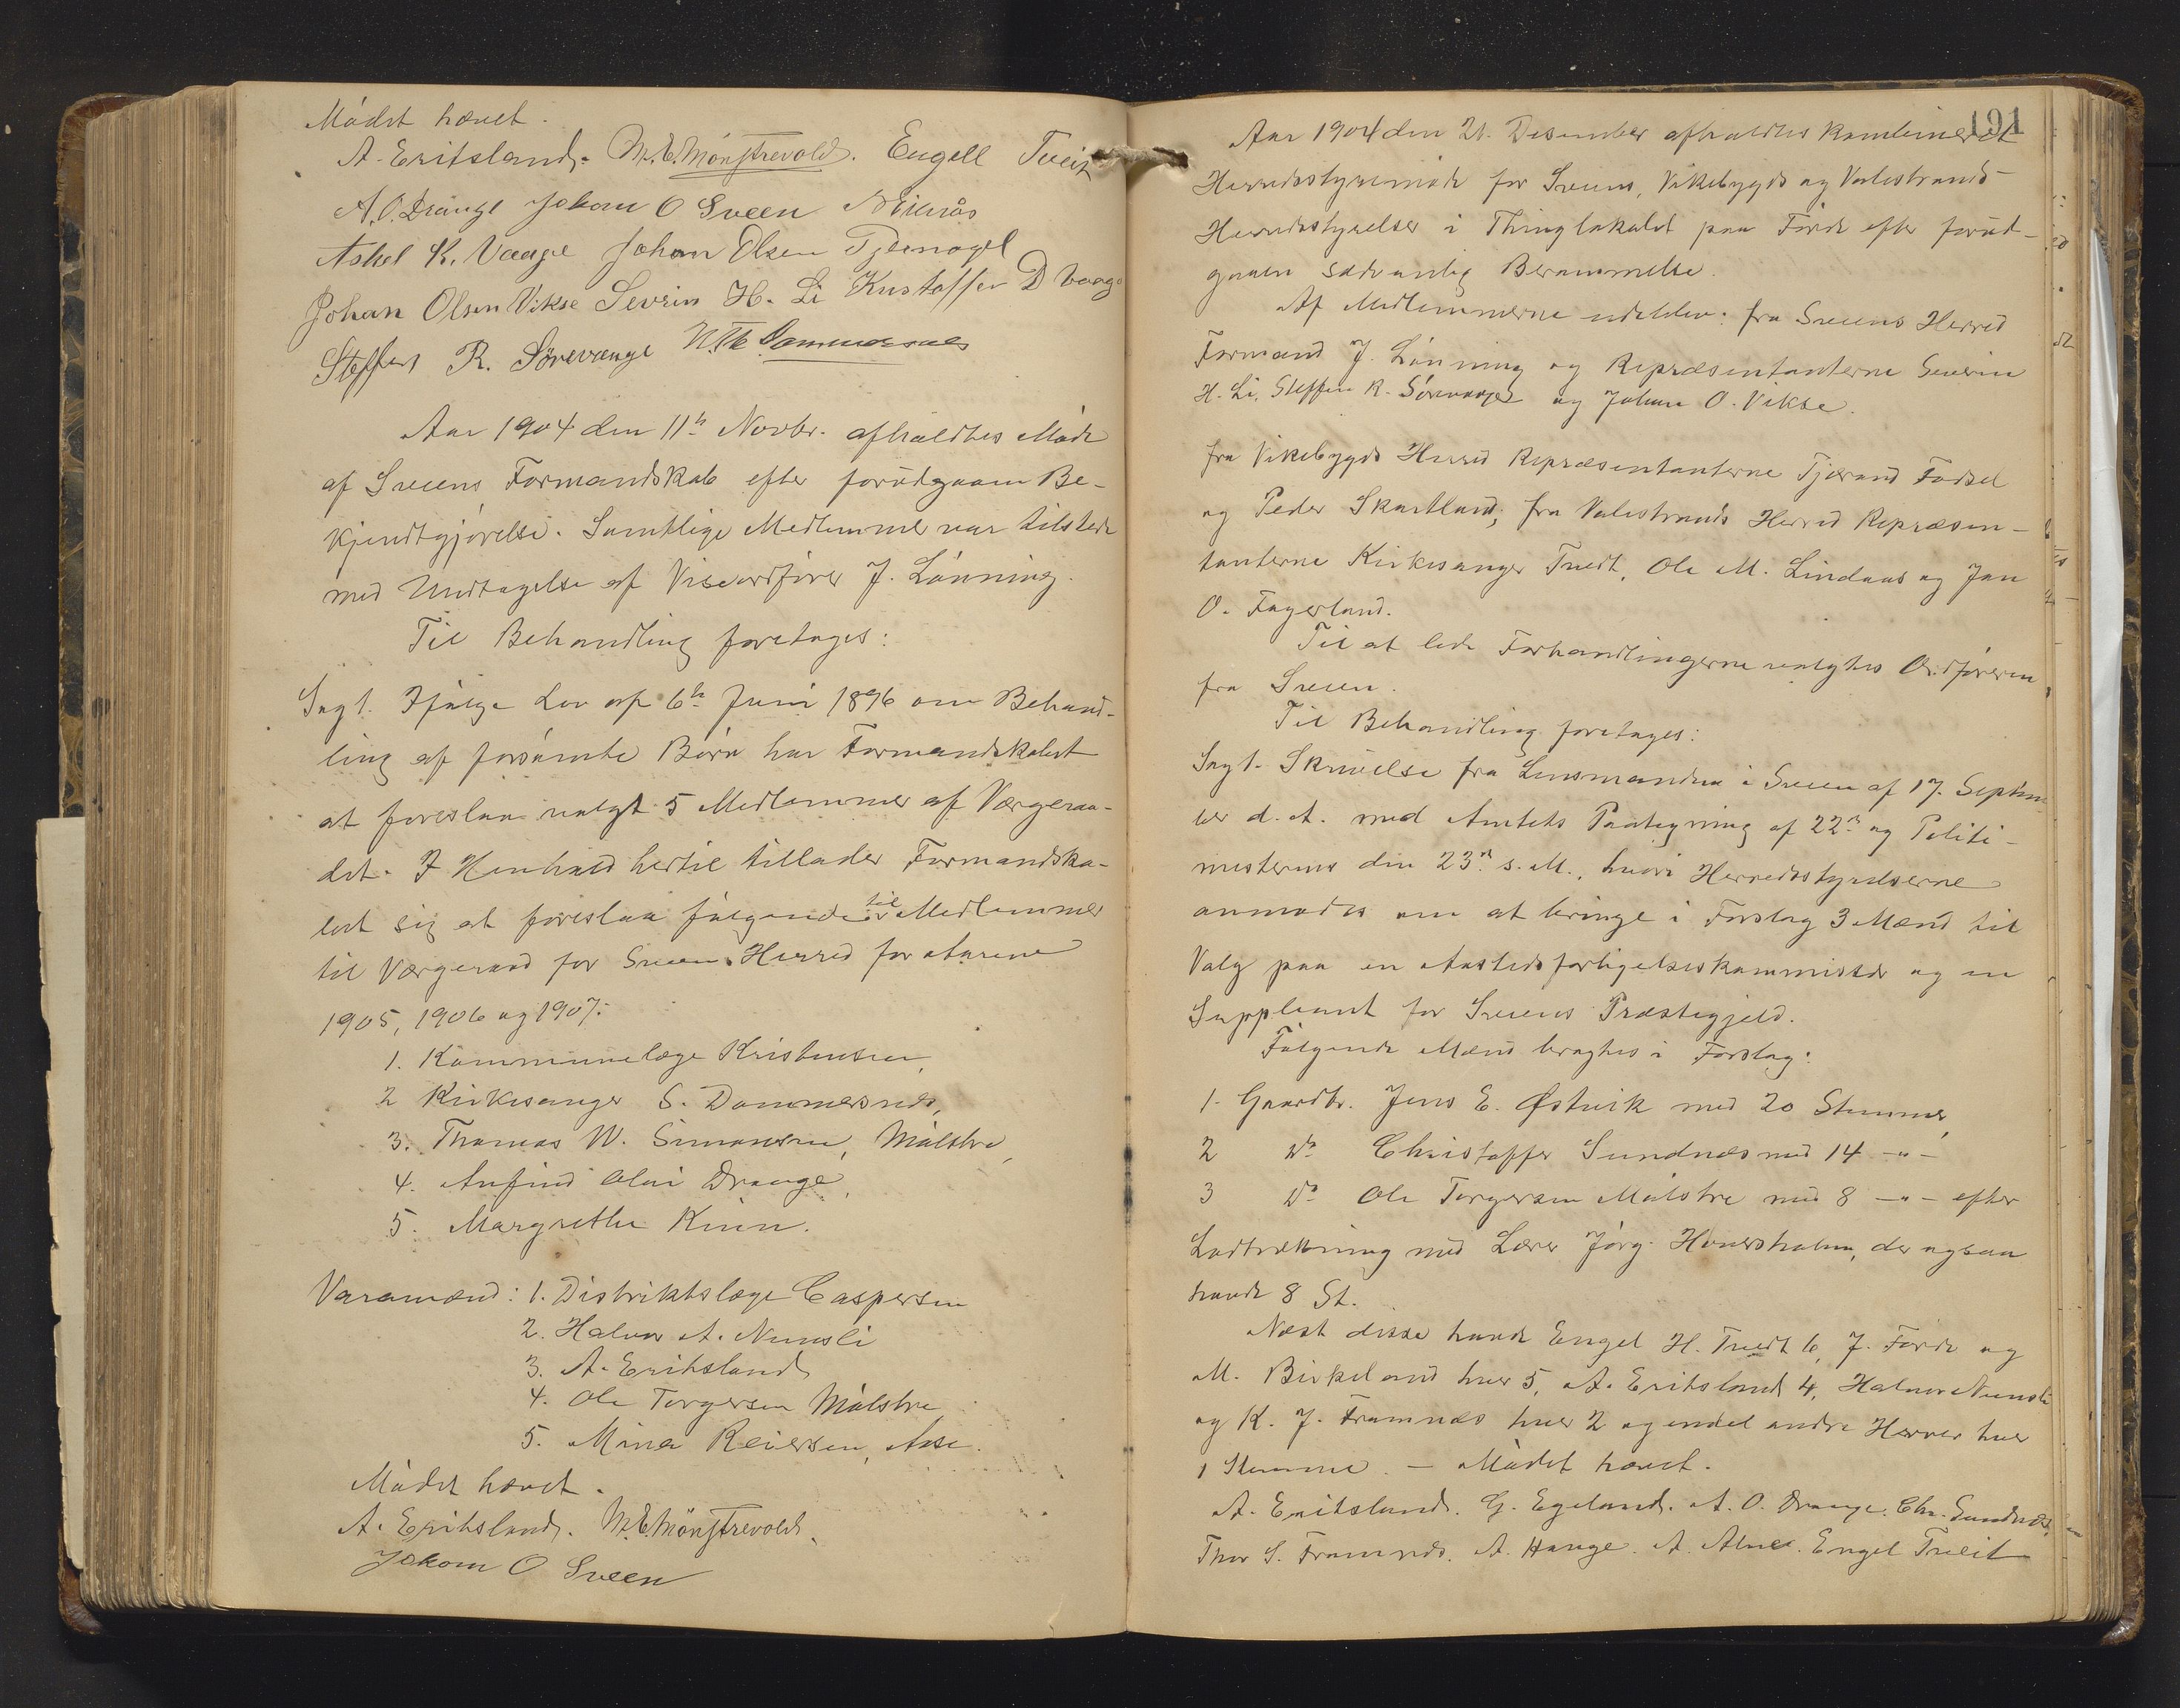 Mødet hævet.
A. Eritsland. M.E. Mønstrevold. Engell Tveit
A.O. Drange Johan O Sveen
Askel K. Vaage Johan Olsen Tjernagel
Johan Olsen Vikse Sevrin H. Li Kristoffer D Vaage
Steffen R. Sørevange Dommersnes
Aar 1904 den 11te Novbr. afholdtes Møde
af Sveens Formandskab efter forudgaaen Be-
kjendtgjørelse. Samtlige Medlemmer var tilstede
med Undtagelse af Viseordfører J. Lønning.
Til Behandling foretages:
Sag 1. Ifølge Lov af 6te Juni 1896 om Behand-
ling af forsømte Børn har Formandskabet
at foreslaa valgt 5 Medlemmer af Værgeraa-
det. I Henhold hertil tillader Formandska-
bet sig at foreslaa følgende til Medlemmer
til Værgeraad for Sveen Herred for Aarene
1905, 1906 og 1907:
1. Kommunelæge Kristensen,
2 Kirkesanger S. Dommersnes,
3. Thomas W. Simonsen, Mølstre,
4. Anfind Olai Drange,
5. Margrethe Kinn.
Varamænd: 1. Distriktslæge Caspersen
2. Halvor A. Nernsli
3. A. Eritsland
4. Ole Torgersen Mølstre
5. Mina Reiersen, Aase.
Mødet hævet.
A. Eritsland. M.E. Mønstrevold.
Johan O Sveen
191
Aar 1904 den 21. Desember afholdtes kombineret
Herredsstyremøde for Sveens, Vikebygds og Valestrands
Herredsstyrelser i Thinglokalet paa Førde efter forud-
gaaen sædvanlig Berammelse.
Af Medlemmerne udeblev: fra Sveens Herred
Formand J. Lønning og Repræsentanterne Severin
H. Li, Steffen R. Sørevange og Johan O. Vikse.
fra Vikebygds Herred Repræsentanterne Tjerand Fadsel
og Peder Skartland; fra Valestrands Herred Repræsen-
tanterne Kirkesanger Tvedt, Ole M. Lindaas og Jan
O. Fagerland.
Til at lede Forhandlingerne valgtes Ordføreren
fra Sveen.
Til Behandling foretages:
Sag 1. Skrivelse fra Lensmanden i Sveen af 17. Septem
ber d. A. med Amtets Paategning af 22de og Politi-
mesterens den 23de s. M., hvori Herredsstyrelserne
anmodes om at bringe i Forslag 3 Mænd til
Valg paa en Aastedsforligelseskommissær og en
Suppleant for Sveens Præstegjeld.
Følgende Mænd bragtes i Forslag:
1. Gaardbr. Jens E. Østvik med 20 Stemmer,
2 Do Christoffer Sundnæs med 14 -"-
3 Do Ole Torgersen Mølstre med 8 -"- efter
Lodtrækning med Lærer Jørg. Hoversholm, der ogsaa
havde 8 St.
Næst disse havde Engel H. Tvedt 6, J. Førde og
M. Birkeland hver 5, A. Eritsland 4, Halvor Nernsli
og K. J. Framnæs hver 2 og endel andre Herrer hver
1 Stemme. - Mødet hævet.
A. Eritsland. G. Egeland. A. O. Drange. Chr. Sundnæs.
Thor S. Framnæs. A. Hauge. A. Engel Tveit